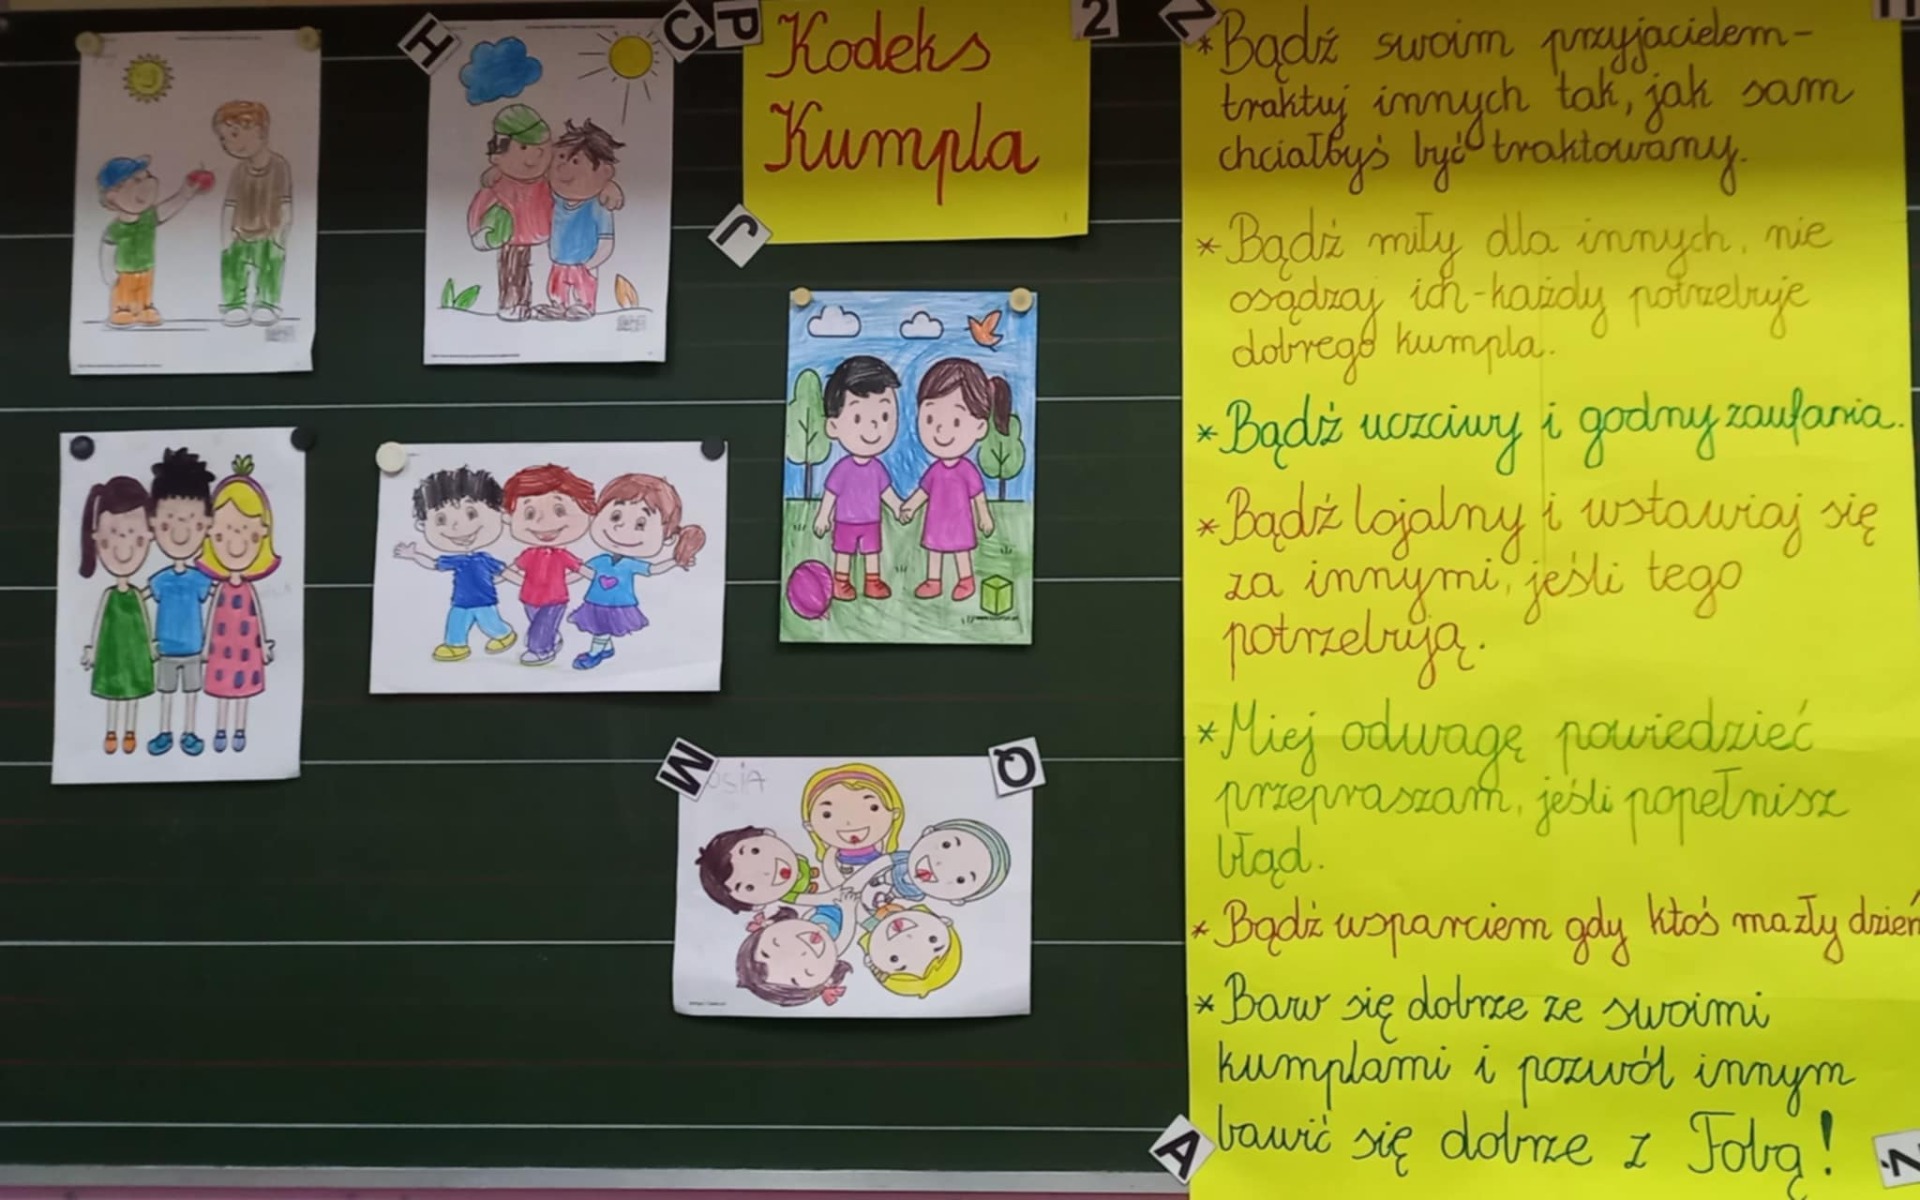 H
C
P
2
Z
J
Kodeks
Kumpla
* Bądź swoim przyjacielem-
traktuj innych tak, jak sam
chciałbyś być traktowany.
* Bądź miły dla innych, nie
osądzaj ich - każdy potrzebuje
dobrego kumpla.
* Bądź uczciwy i godny zaufania.
* Bądź lojalny i wstawiaj się
za innymi, jeśli tego
potrzebują.
* Miej odwagę powiedzieć
przepraszam, jeśli popełnisz
błąd.
* Bądź wsparciem gdy ktoś ma zły dzień
* Baw się dobrze ze swoimi
kumplami i pozwól innym
bawić się dobrze z Tobą!
M
O
A